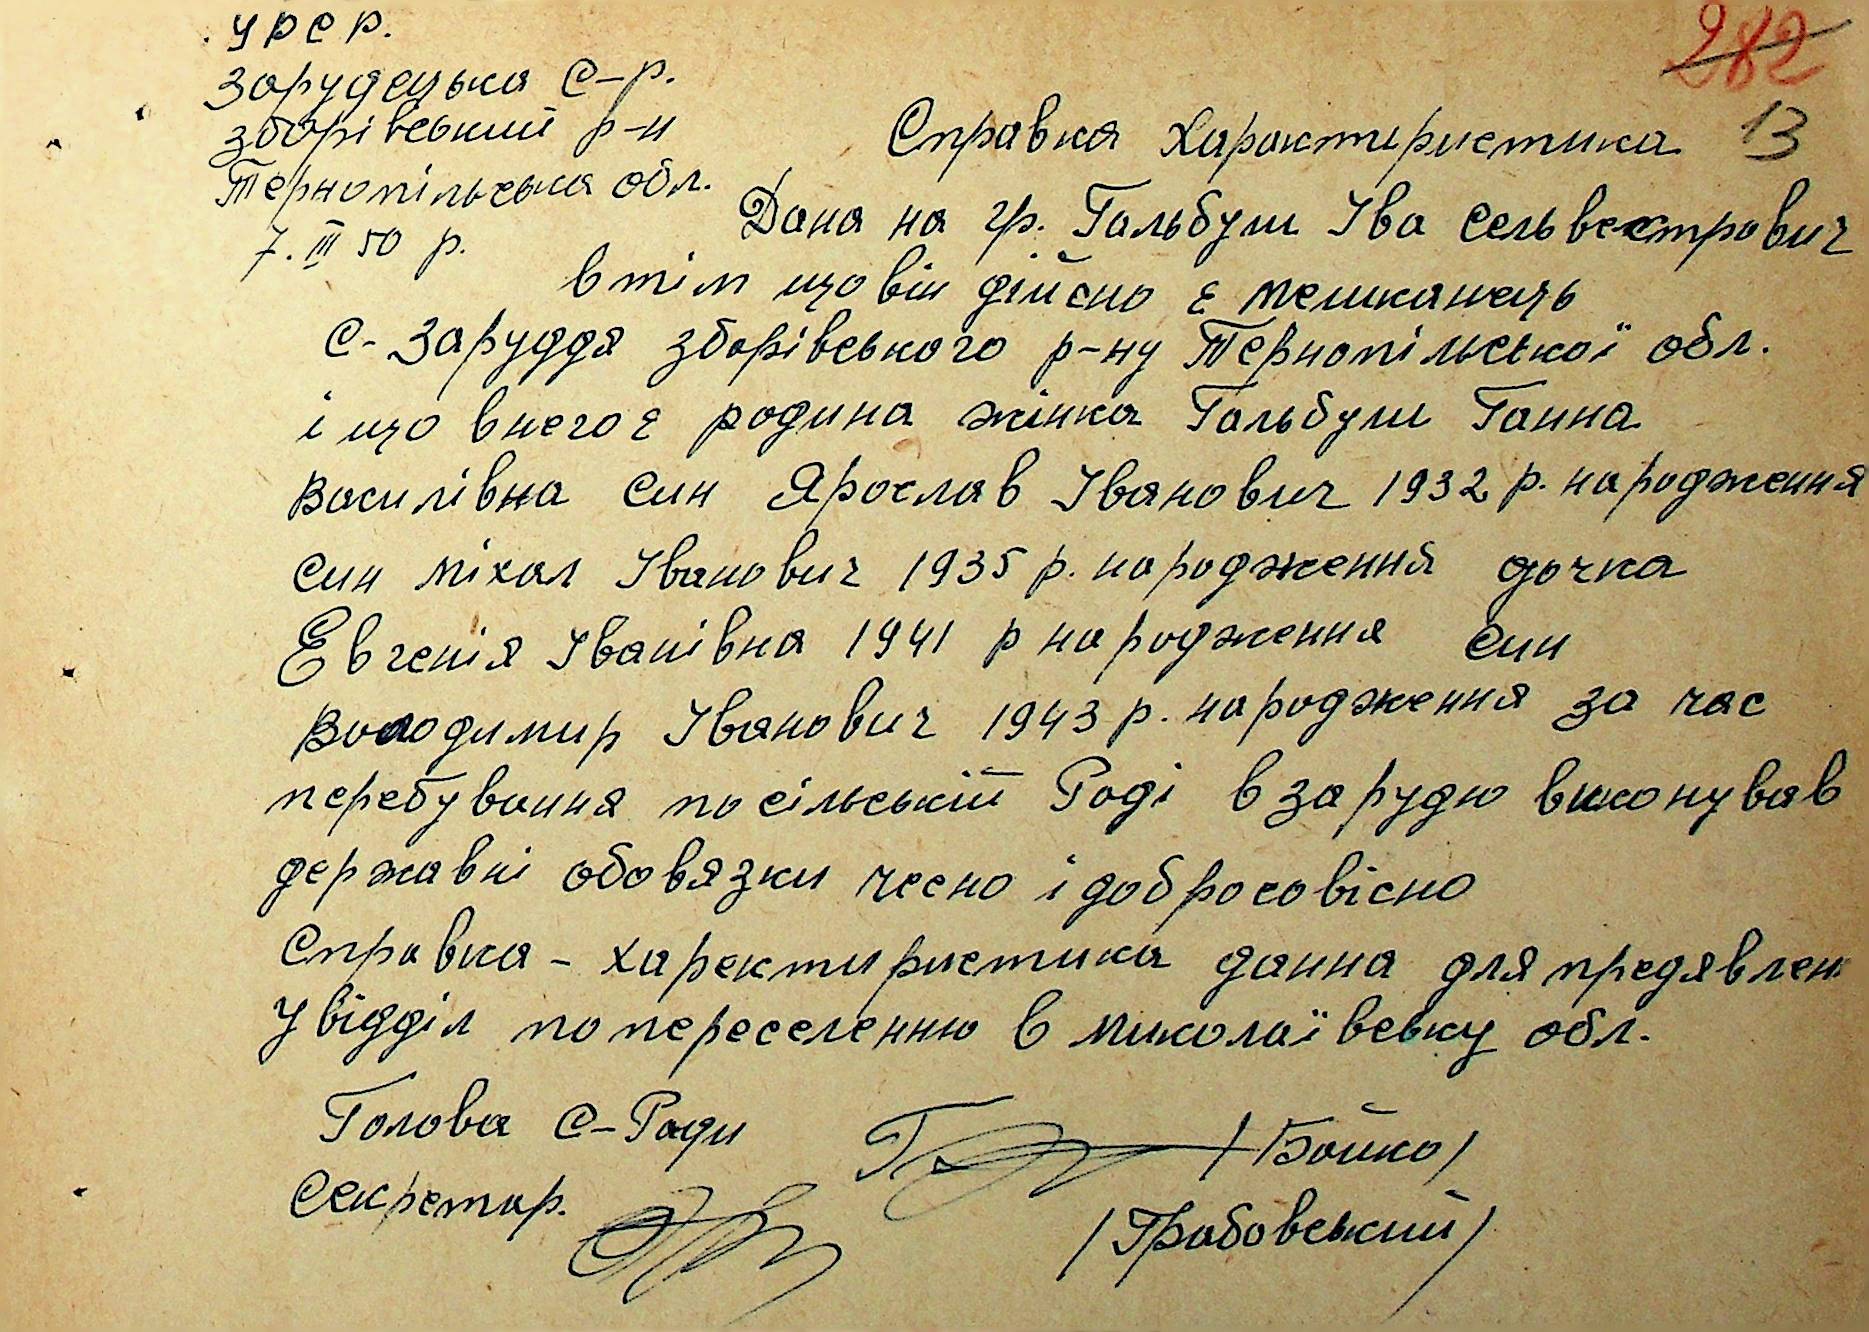 УРСР.
Зарудецька С-р.
Зборівський р-н
Тернопільська обл.
7. III 50 р.
282
13
Справка Характиристика
Дана на гр. Гальбуш Іва Сельвестрович
втім що він дійсно є мешканець
С-Заруддя Зборівського р-ну Тернопільської обл.
і що внего є родина жінка Гальбуш Ганна
Василівна син Ярослав Іванович 1932 р. народження
син Міхал Іванович 1935 р. народження дочка
Евгенія Іванівна 1941 р народження син
Володимир Іванович 1943 р. народження за час
перебування по сільській Раді в Зарудю виконував
державні обовязки чесно і добросовісно
Справка - харектиристика данна для предявлен
У відділ по переселенню в Миколаївську обл.
Голова С-Ради /Бойко/
Секретар. /Грабовський/